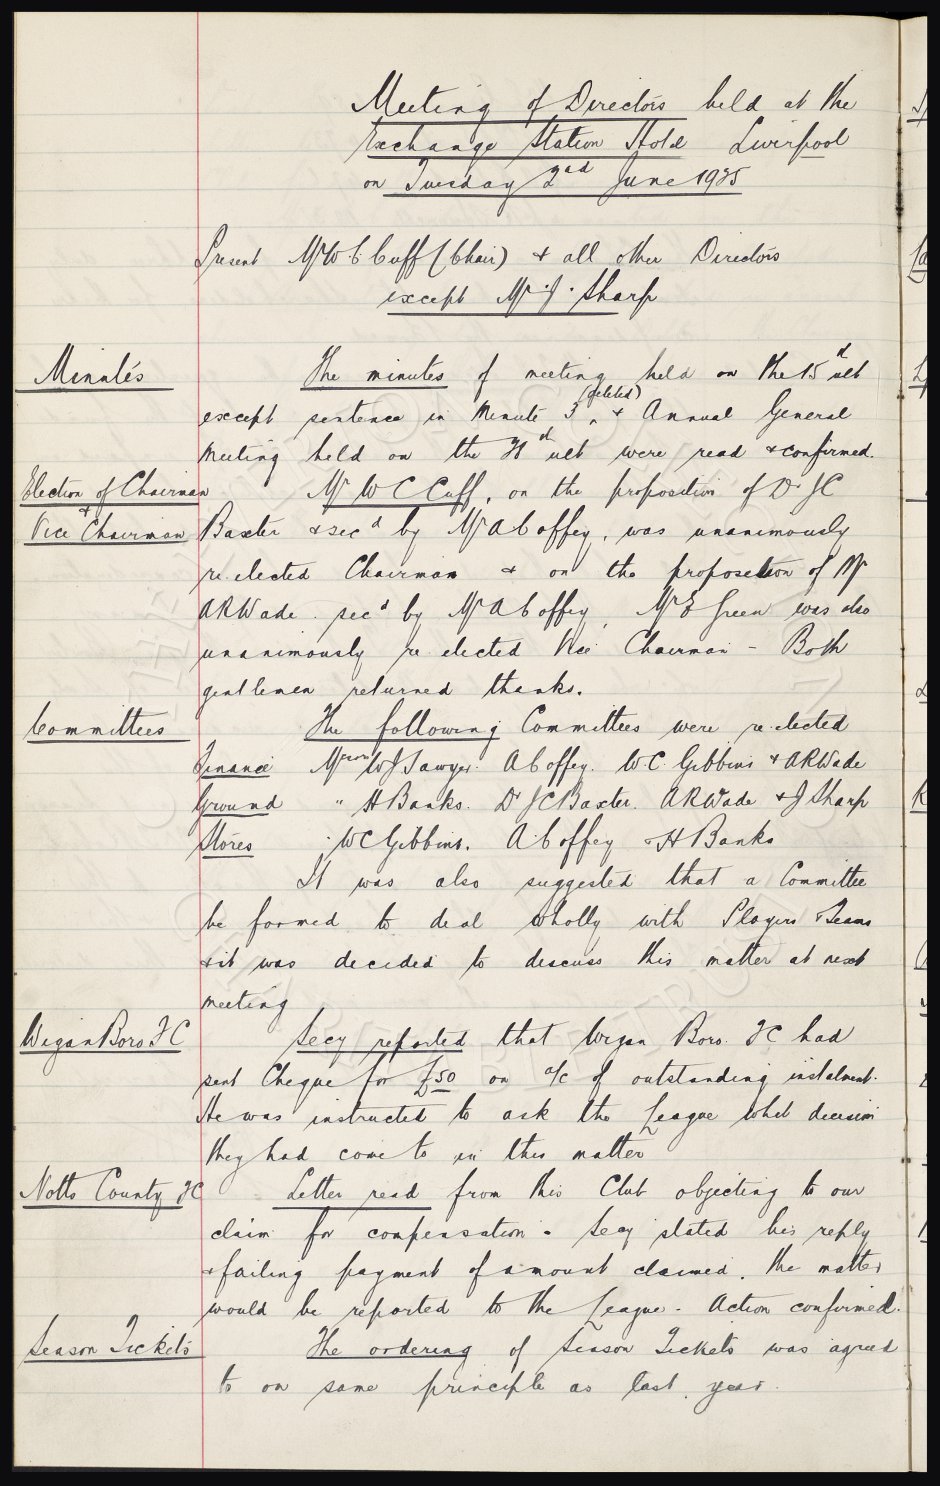 Meeting of Directors held at the
Exchange Station Hotel Liverpool
on Tuesday 2nd June 1925
Present Mr W. C. Cuff (Chair) & all other Directors
except Mr J. Sharp
Minutes
The minutes of meeting held on the 15th ult
(deleted)
except sentence in Minute 3, & Annual General
Meeting held on the ult were read & confirmed.
Election of Chairman
&
Vice Chairman
Mr W C Cuff, on the proposition of Dr J C
Baxter & secd by Mr A Coffey, was unanimously
re-elected Chairman & on the proposition of Mr
A R Wade secd by Mr A Coffey, Mr E Green was also
unanimously re elected Vice Chairman - Both
gentlemen returned thanks.
Committees
The following Committees were re-elected
Finance Messrs W J Sawyer. A Coffey. W. C. Gibbins & A R Wade
Ground " H Banks. Dr J C Baxter. A R Wade & J Sharp
Stores " W C Gibbins. A. Coffey & H Banks
It was also suggested that a Committee
be formed to deal wholly with Players & Teams
& it was decided to discuss this matter at next
meeting
Wigan Boro F C
Secy reported that Wigan Boro. F C had
sent Cheque for £50 on a/c of outstanding instalment.
He was instructed to ask the League what decision
they had come to in this matter
Notts County F C
Letter read from this Club objecting to our
claim for compensation. Secy stated his reply
& failing payment of amount claimed, the matter
would be reported to the League. Action confirmed.
Season Tickets
The ordering of Season Tickets was agreed
to on same principle as last year.